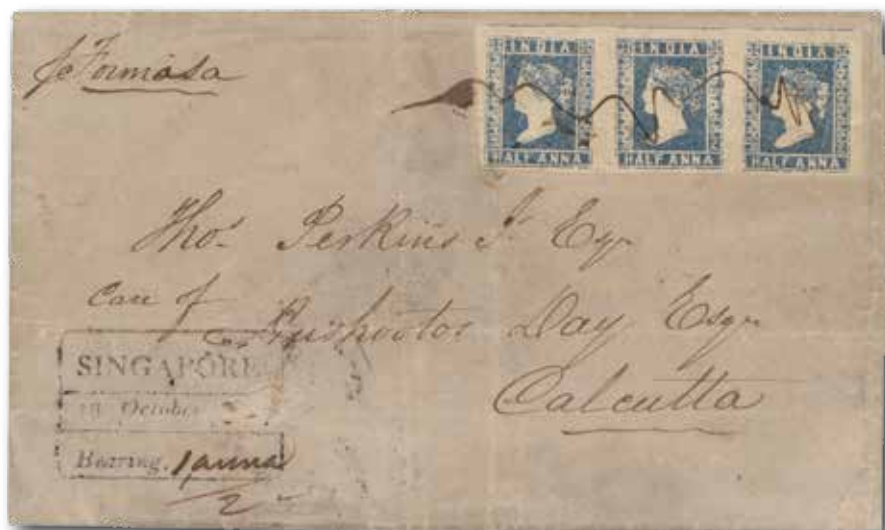 p Formosa
INDIA INDIA INDIA
HALF ANNA HALF ANNA HALF ANNA
Thos. Perkins Jr. Esqr
Care of Aushootos Day Esqr
Calcutta
SINGAPORE
October
Bearing. 1 anna